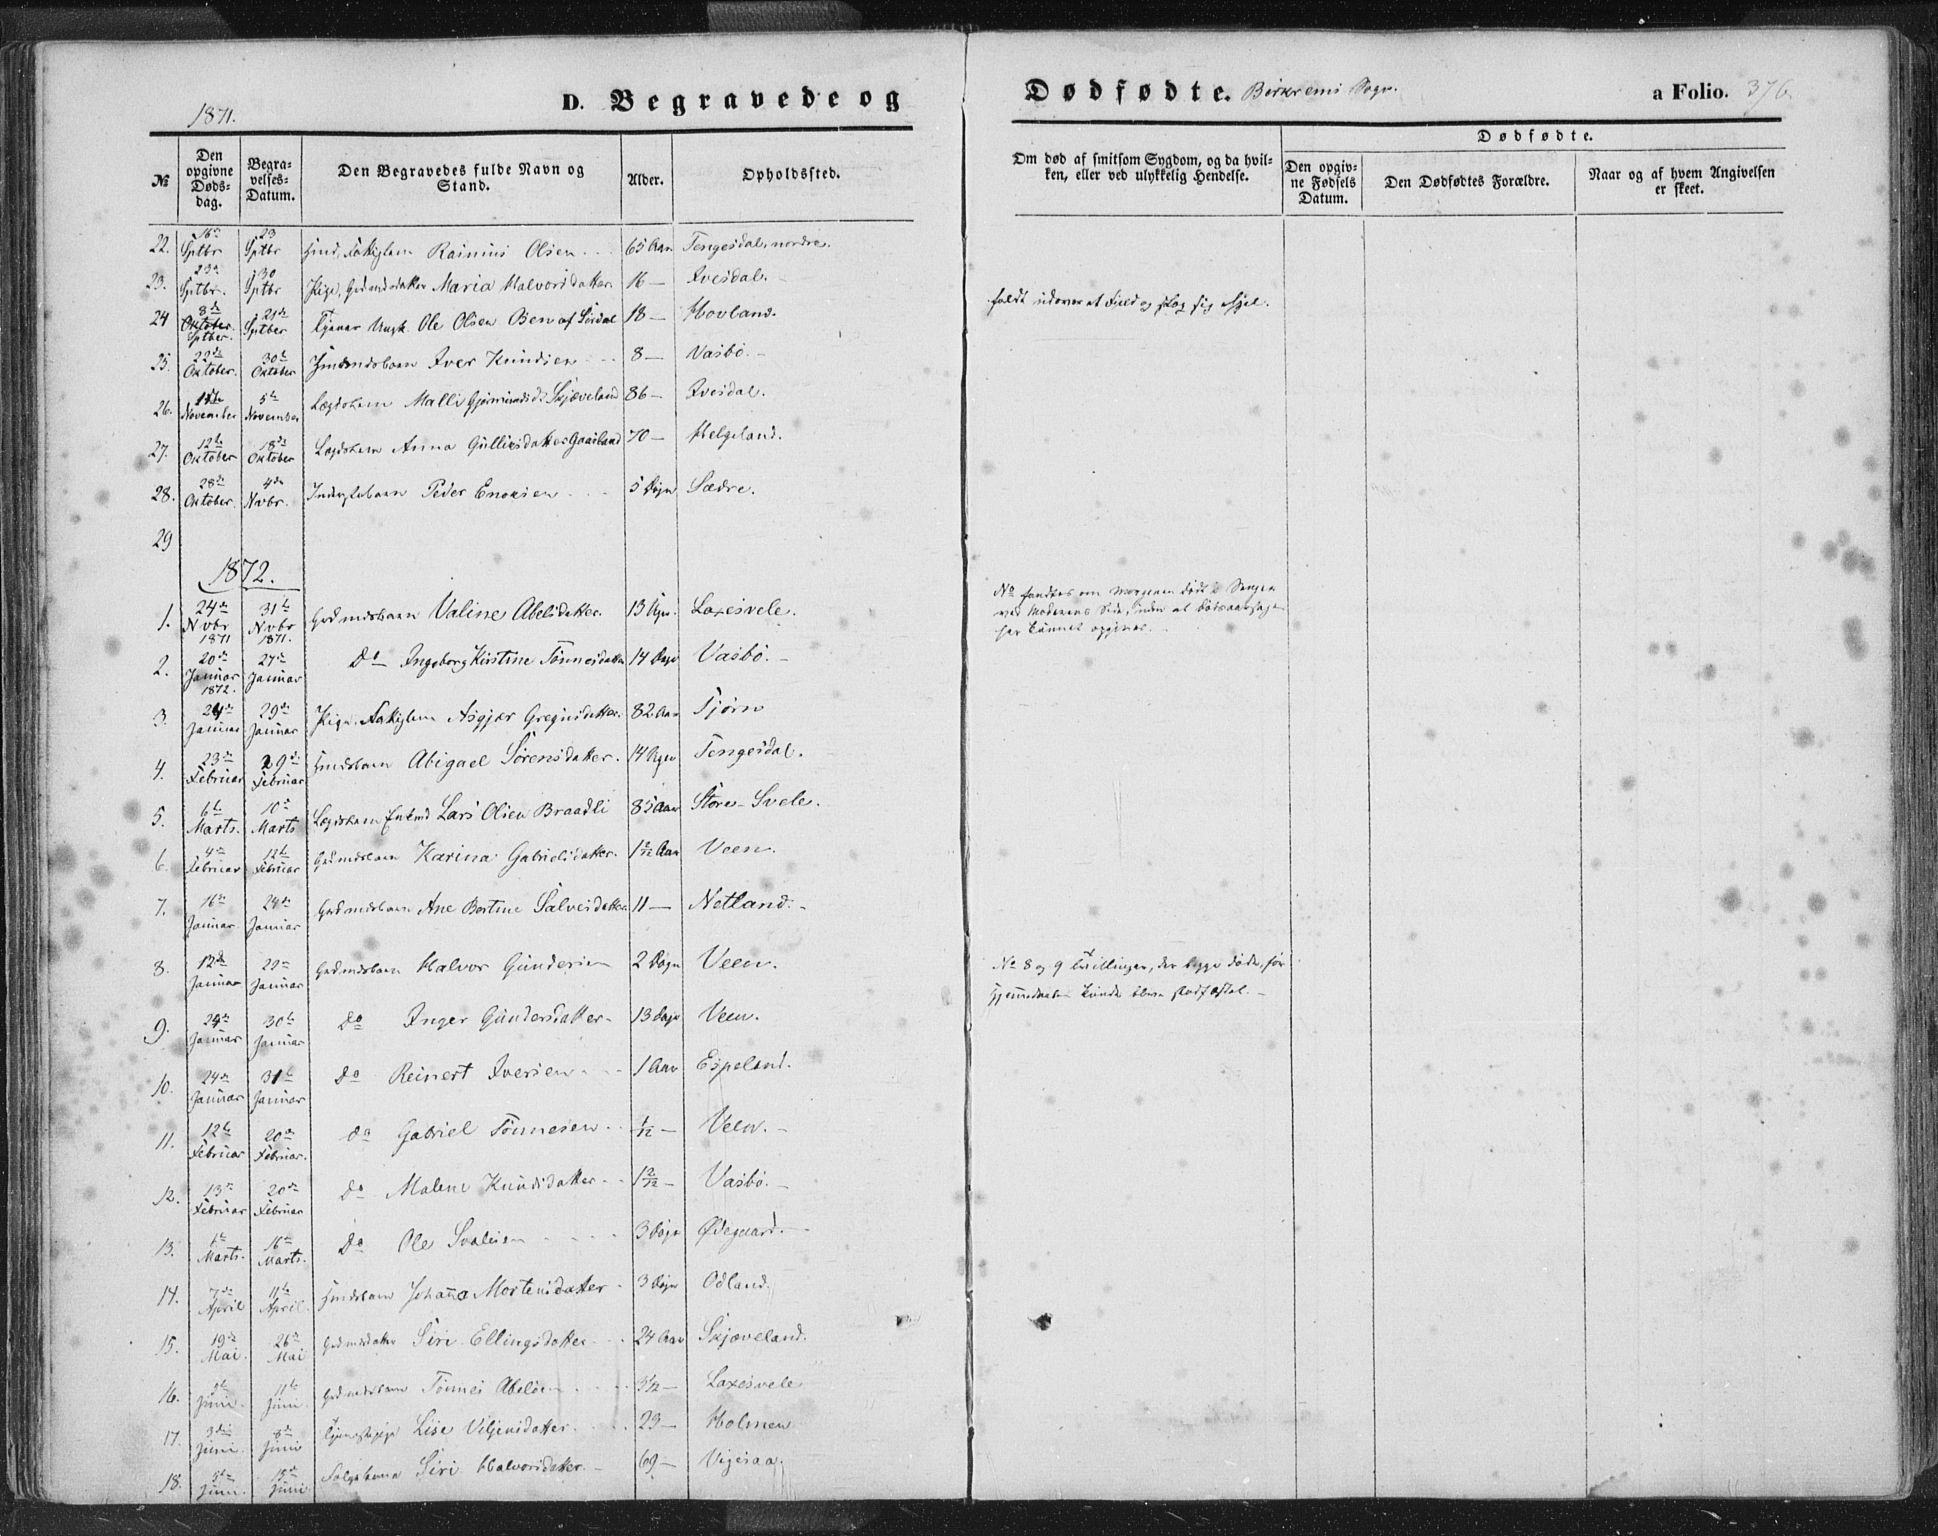 1871.
D. Begravede og Dødfødte. Birkrems Sogn. a Folio. 376.
№ Den opgivne Dødsdag. Begravelses-Datum. Den Begravedes fulde Navn og Stand. Alder. Opholdssted. Om død af smitsom Sygdom, og da hvilken, eller ved ulykkelig Hendelse. Dødfødte. Den opgivne Fødsels Datum. Den Dødfødtes Forældre. Naar og af hvem Angivelsen er skeet.
22. 16de Sptbr 23 Sptbr Rasmus Olsen 65 Aar Tengesdal, nordre.
23. 23de Sptbr. 30 Sptbr Pige, Maria Halvorsdatter. 16 — Ivesdal.
24 8de Oktober. Sptber. 21de Sptber Tjener Ungk. Ole Olsen Ben af Sördal 18 — Hovland. faldt udover et Field og slog sig ihjel.
25. 22de Oktober. 30te Oktober Iver Knudsen 8 — Vasbö.
26. November 5te November Lægdslem Malli Skjæveland 86 — Ivesdal.
27. 12te Oktober 18de Oktober Lægdslem Anna Gulliksdatter 70 — Helgeland.
28. 28de Oktober. 4de Nvbr. Inderstebarn Peder Enoksen 5 Døgn Sædre.
29
1872.
1. 24de Nvbr 1871 31te Nvbr 1871. Gmdsbarn Valine Abelsdatter. 13 Laxesvele. No fandtes om Morgenen död i Sengen ved Moderens Side, uden at
2. 20de Januar 1872. 27de Januar Do Ingeborg Kirstine Tönnesdatter 14 Døgn Vasbö.
3. 24 Januar 29de Januar Pige, Asgjær Gregusdatter. 82 Aar Tjörn
4. 23de Februar 29de Februar Abigael Sörensdatter. 14 Tengesdal.
5. 6te Marts. 10de Marts Lægdslem Enkmd Lars Olsen Braadli 85 Aar Store-Svele.
6. 4de Februar 12te Februar Gmdsbarn Karina Gabrielsdatter. 1 2/12 Aar Veen.
7. 16de Januar. 24de Januar Gmdsbarn Ane Bertine Salvesdatter 11 — Netland.
8. 12te Januar 29de Januar Gmdsbarn Halvor Gundersen 2 Døgn Veen. No 8 og 9 Tvillinger, der begge döde, før Hjemmedaaben kunde blive stadfæstet.
9. Januar 30te Januar Do Inger Gundersdatter. 13 Døgn Veen.
10. 24de Januar 31te Januar Do Reinert Iversen 1 Aar Espeland.
11. 12te Februar 20de Februar. Do Gabriel Tönnesen 1/12 — Veen.
12. 13de Februar 20de Februar Do Malene Knudsdatter 1 2/12 — Vasbö.
13. Marts. 16de Marts. Do Ole 3 Døgn Ødegaard.
14. 7de April 11te April. Johanna Mortensdatter 3 Døgn Odland.
15. 19de Mai. 26de Mai Gmdsdatter Siri Ellingsdatter 24 Aar Skjæveland.
16. Juni. 11te Juni. Gmdsbarn Tönnes Abelsen 3 1/2 — Laxesvele
17. 3die Juni. 8de Juni Tjenestepige Lise Viljensdatter. 23 — Holmen
18. Juni. 15de Juni Siri Halvorsdatter. 69 — Vigesaa.